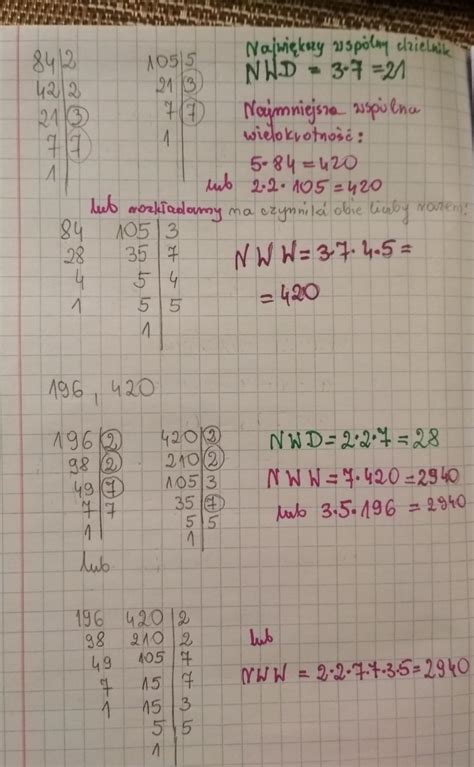 84 | 2
42 | 2
21 | 3
7 | 7
1 |
105 | 5
21 | 3
7 | 7
1 |
Największy wspólny dzielnik
NWD = 3·7 = 21
Najmniejsza wspólna
wielokrotność:
5·84 = 420
lub 2·2·105 = 420
lub rozkładamy na czynniki obie liczby razem:
84 105 | 3
28 35 | 7
4 5 | 4
1 5 | 5
1 |
NWW = 3·7·4·5 =
= 420
196, 420
196 | 2
98 | 2
49 | 7
7 | 7
1 |
420 | 2
210 | 2
105 | 3
35 | 7
5 | 5
1 |
NWD = 2·2·7 = 28
NWW = 7·420 = 2940
lub 3·5·196 = 2940
lub
196 420 | 2
98 210 | 2
49 105 | 7
7 15 | 7
1 15 | 3
5 | 5
1 |
lub
NWW = 2·2·7·7·3·5 = 2940